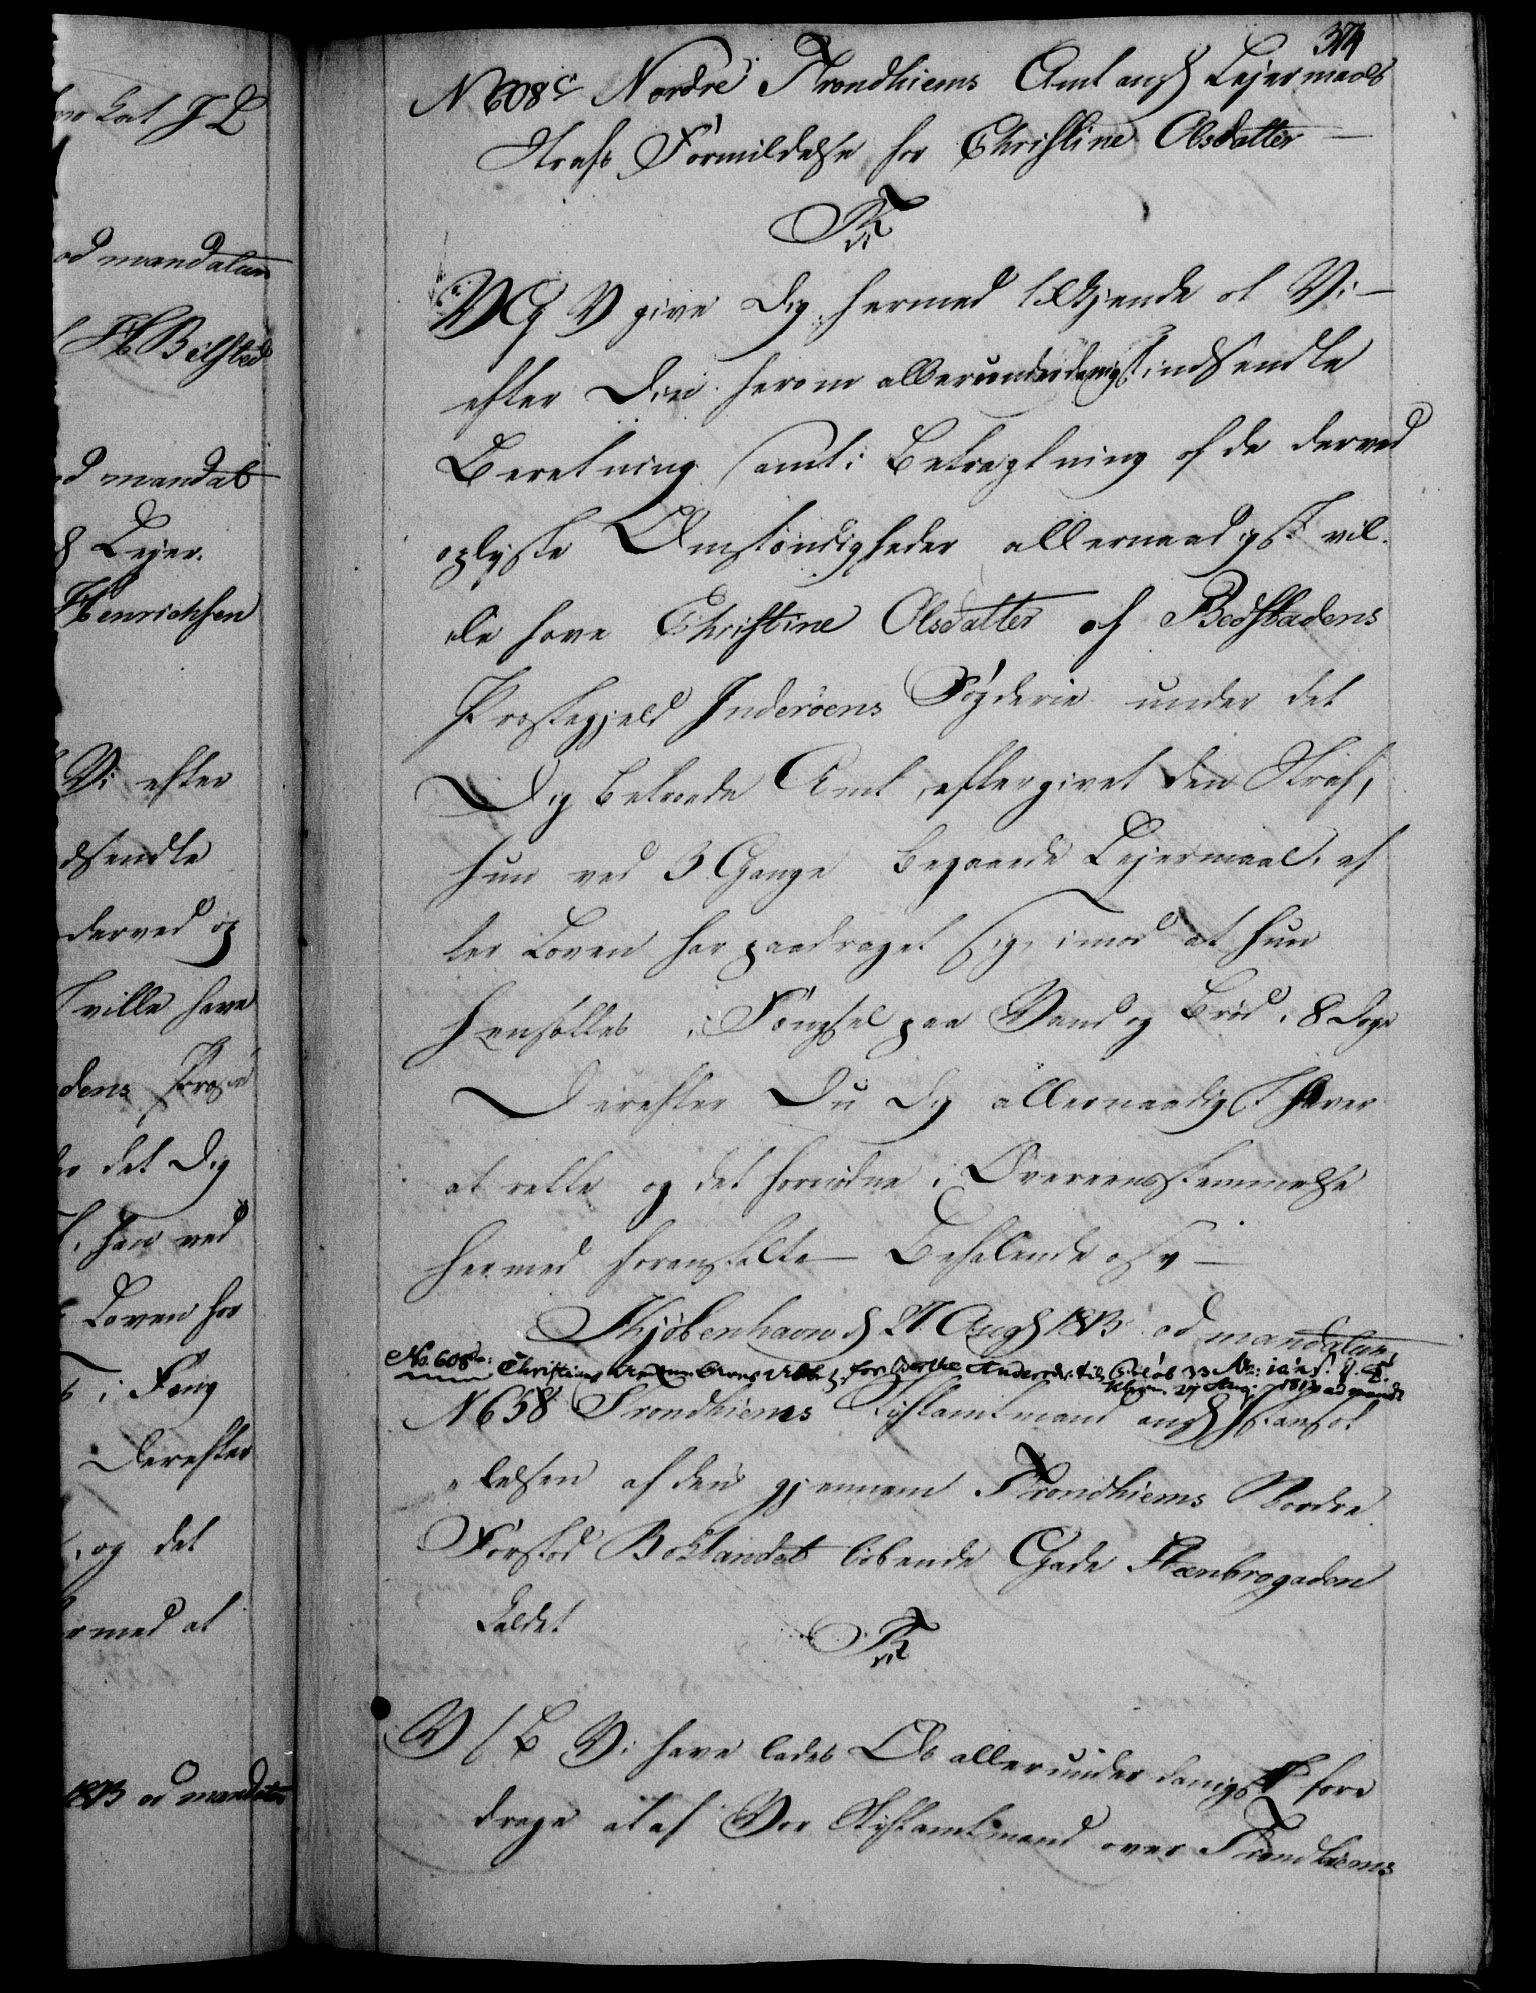 374
No 608c Nordre Trondhiems Amt angd Lejermaals
Strafs Formildelse for Christine Olsdatter
V G V give Dig hermed tilkjende at Vi
efter Din herom allerunderdanigst indsendte
Beretning samt i Betragtning af de derved
oplyste Omstændigheder allernaadigst vil-
de have Christine Olsdatter af Bedstadens
Præstegjeld Inderøens Fogderie under det
Dig betroede Amt, eftergivet den Straf,
hun ved 3 Gange begaaede Lejermaal, ef-
ter Loven har paadraget sig, imod at hun
hensættes i Fængsel paa Vand og Brød i 8 Dage
Derefter Du Dig allernaadigst haver
at rette og det fornødne i Overeensstemmelse
hermed foranstalte Befalende osv
Kjøbenhavn d 27 Augt 1813 ad mandatum
No. 608d: Christine for Berthe Andersdr. til 33
Khavn 27 Aug: 1813 ad mandt
No 658 Trondhiems Stiftamtmand angd
-telsen af den gjennem Trondhiems Nordre
Forstad Baklandet løbende Gade
kaldet
V Vi have ladet Os allerunderdanigst fore
drage at af Vor Stiftamtmand over Trondhiems
ad mandatum
Bilsted
ad mandat
Lejer-
Henrichsen
Vi efter
dsendte
derved op
ville have
dens Præste
det Dig
hun ved
Loven har
i Fæng
Derefter
og det
ermed at
1813 ad mandatum